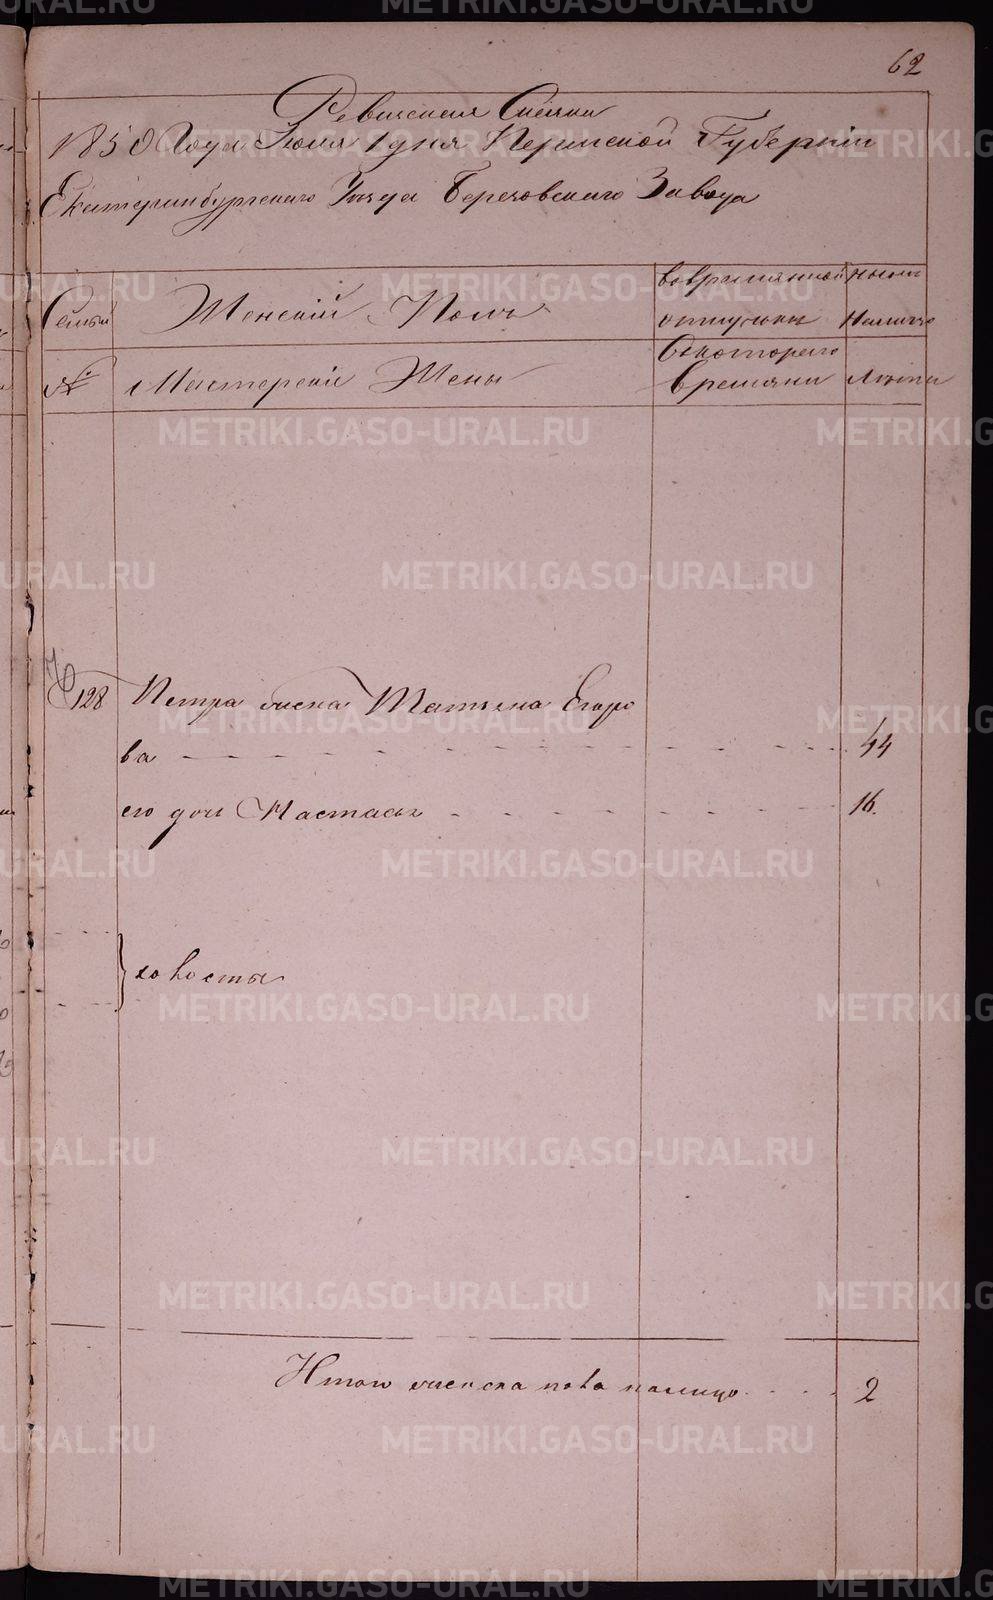 62
Ревизская Сказка
1850 Года Июня 1 дня Пермской Губернiи
Екатеринбургскаго Уезда Березовскаго Завода
Семьи
Женскiй Полъ
вовременной
отлучки
ныне
Налицо
№
Мастерскiи Жены
Скотораго
Времяни
Лѣта
128 Петра жена Татьяна Егоро
ва 44
его дочь Настасья 16.
холосты
Итого женска пола налицо 2
METRIKI.GASO-URAL.RU